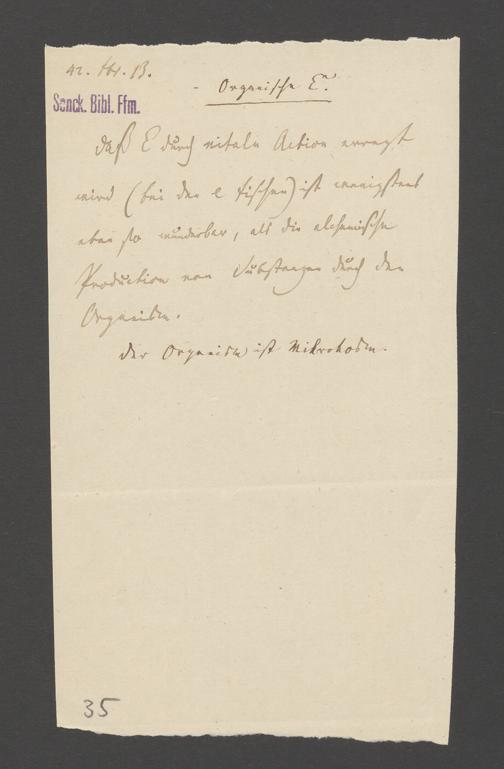 42. Hr. 13.
- Organische E.
Senck. Bibl. Ffm.
Daß E durch vitale Action erregt
wird (bei den e Fischen) ist wenigstens
eben so wunderbar, als die alchemische
Production von Substanzen durch den
Organism.
Der Organism ist Mikrokosm.
35